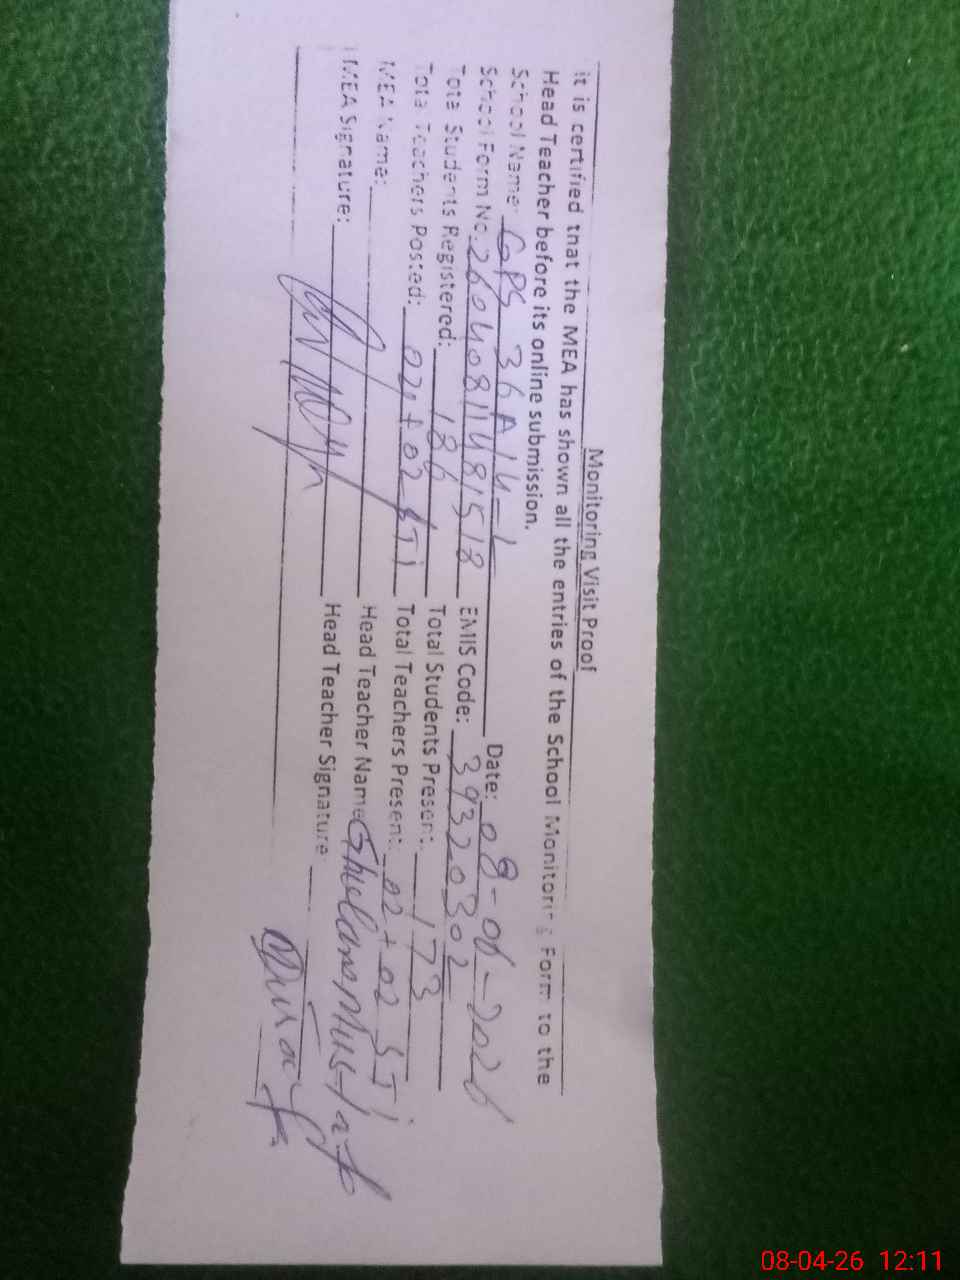 Monitoring Visit Proof
it is certified that the MEA has shown all the entries of the School Monitoring Form to the
Head Teacher before its online submission.
School Name: GPS 36A/4-L Date: 08-04-2026
School Form No. 26040811481518 EMIS Code: 39320302
Total Students Registered: 186 Total Students Present: 173
Total Teachers Posted: 02+02 STI Total Teachers Present: 02+02 STI
MEA Name: Head Teacher Name Ghulam Mustafa
MEA Signature: Head Teacher Signature:
08-04-26 12:11